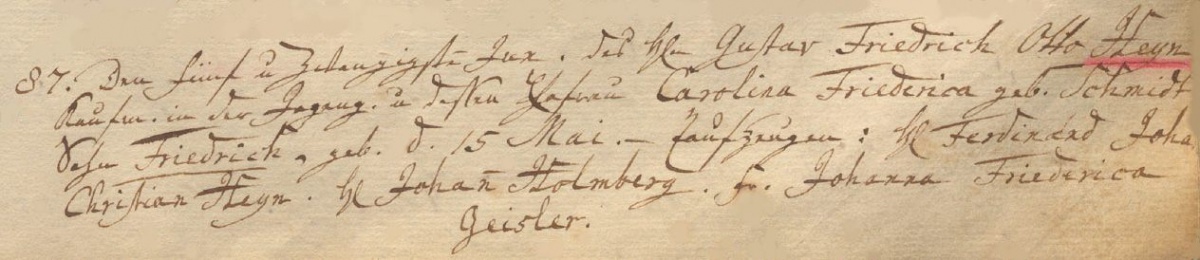 87. Den fünf u Zwanzigste Jun. des H̄en Gustav Friedrich Otto Heyn
Kaufm. in der Gegend. u dessen Ehefrau Carolina Friederica geb. Schmidt
Sohn Friedrich, geb. d. 15 Mai. – Taufzeugen: H̄ Ferdinand Joha
Christian Heyn. H̄ Johan̄ Holmberg. Fr. Johanna Friederica
Geisler.